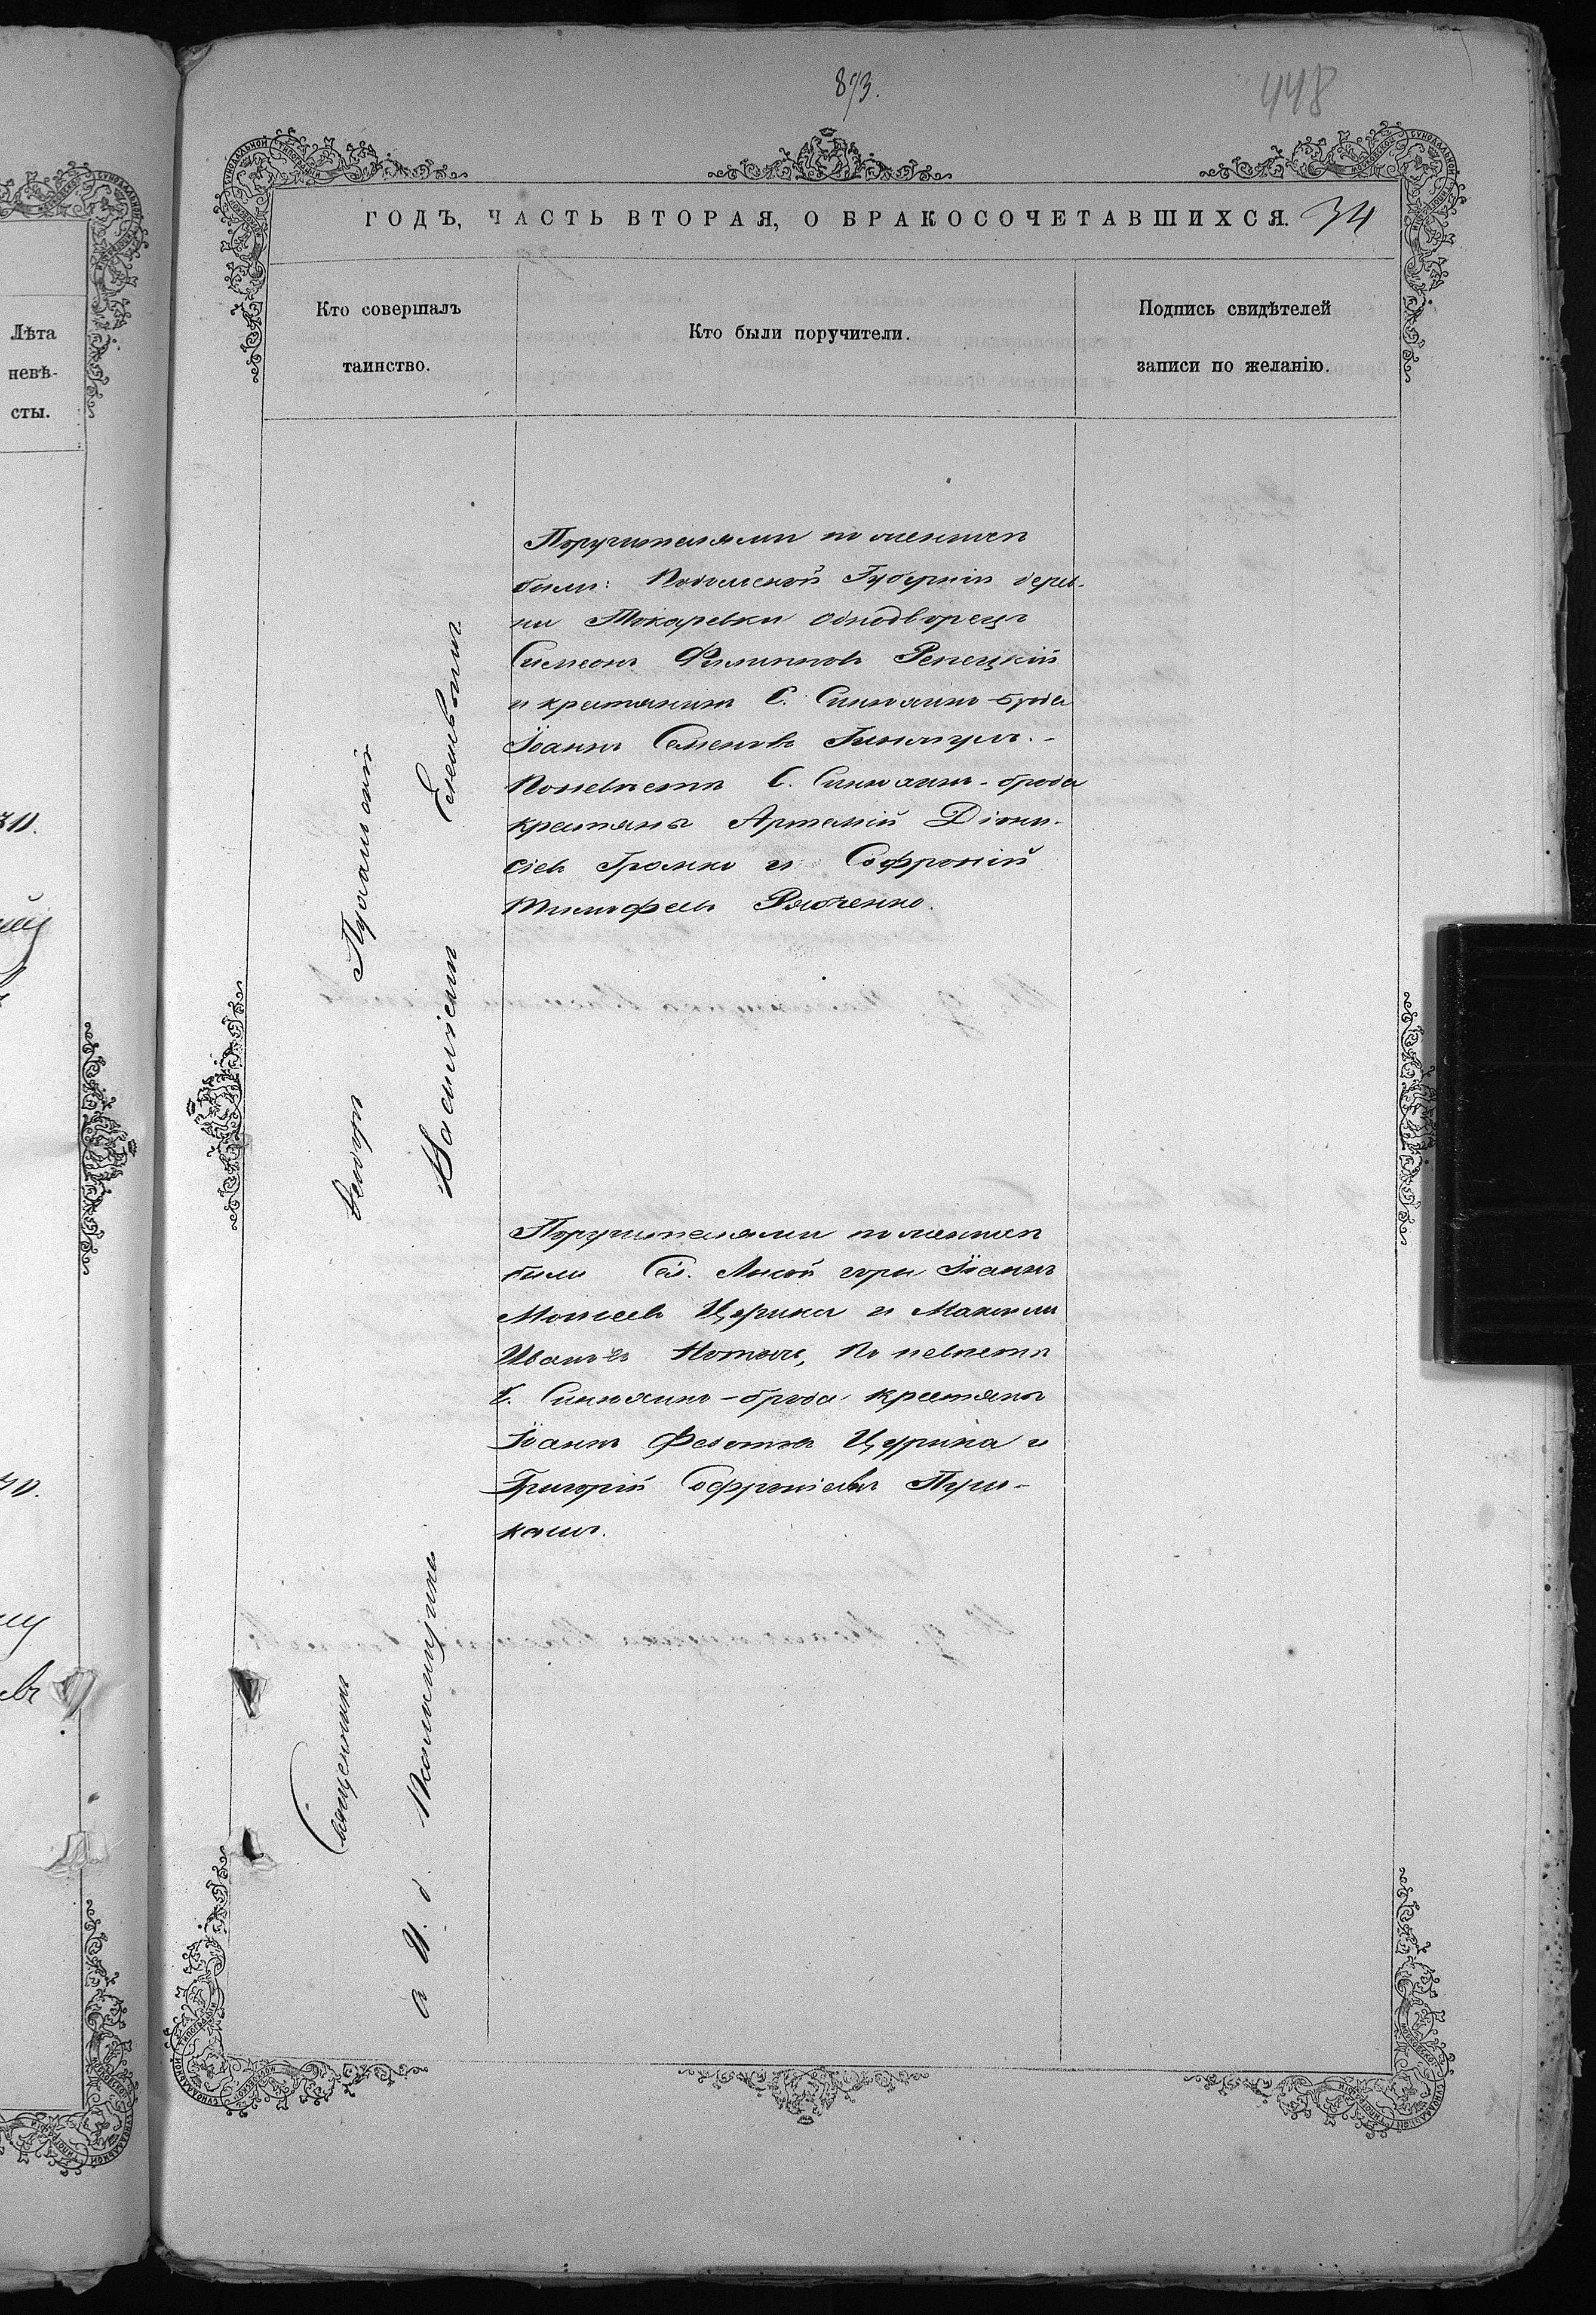 893.
448
ГОДЪ, ЧАСТЬ ВТОРАЯ, О БРАКОСОЧЕТАВШИХСЯ. 34
Лѣта
невѣ-
сты.
Кто совершалъ
таинство.
Кто были поручители.
Подпись свидѣтелей
записи по желанію.
Священникъ Георгій
а И. д. Псаломщика Василій Емельяновъ
Поручителями по женихѣ
были: Подольской Губерніи дерев-
ни Токаревки однодворецъ
Симеонъ Филиповъ Репецкій
и крестьянинъ С. Синюхино-Брода
Іоаннъ Семеновъ
По невѣстѣ С. Синюхино-брода
крестьяне Артемій Діони-
сіевъ Громко и Софроній
Тимофеевъ
Поручителями по женихѣ
были Сел. Лысой горы Іоаннъ
Моисеевъ Цурика и Максимъ
Ивановъ По невѣстѣ
С. Синюхино-брода крестьяне
Іоаннъ Федотовъ Цуррика и
Григорій Софроніевъ Пуш-
каль.